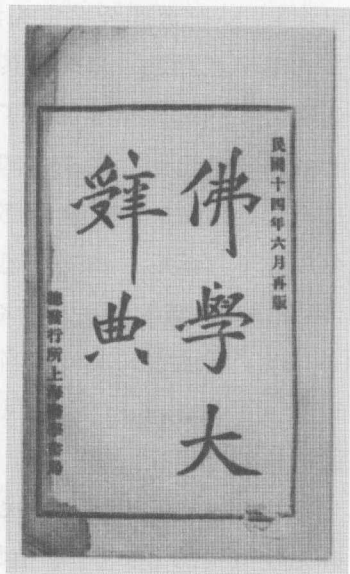 民國十四年六月再版
佛學大
辤典
總發行所上海醫學書局